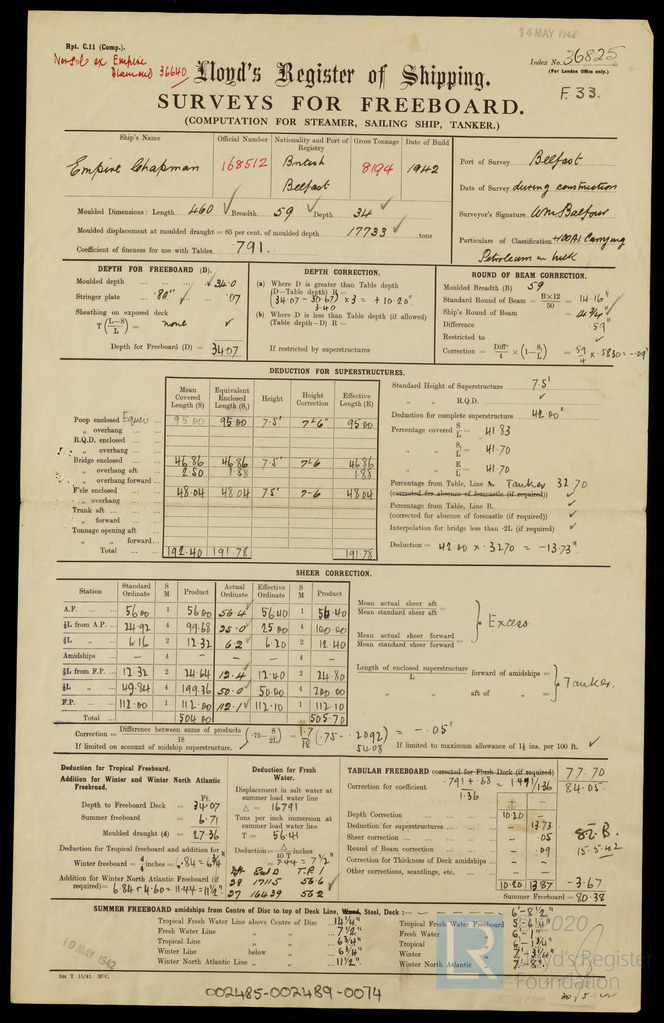 14 MAY 1942
Rpt. C.11 (Comp.).
Norsol ex Empire Diamond 36640
Lloyd's Register of Shipping.
Index No. 36825
(For London Office only.)
F.33.
SURVEYS FOR FREEBOARD.
(COMPUTATION FOR STEAMER, SAILING SHIP, TANKER.)
Ship's Name
Official Number
Nationality and Port of Registry
Gross Tonnage
Date of Build
Empire Chapman
168512
British Belfast
8194
1942
Port of Survey Belfast
Date of Survey during construction
Surveyor's Signature Wm Balfour
Particulars of Classification +100A1 Carrying Petroleum in bulk
Moulded Dimensions: Length 460 Breadth 59 Depth 34
Moulded displacement at moulded draught = 85 per cent. of moulded depth 17733 tons
Coefficient of fineness for use with Tables .791.
DEPTH FOR FREEBOARD (D).
Moulded depth ... 34.0
Stringer plate .80" .07
Sheathing on exposed deck
T (L–S/L) = none
Depth for Freeboard (D) = 34.07
DEPTH CORRECTION.
(a) Where D is greater than Table depth
(D–Table depth) R =
(34.07 - 30.67) × 3 = + 10.20"
3.40
(b) Where D is less than Table depth (if allowed)
(Table depth–D) R =
If restricted by superstructures
ROUND OF BEAM CORRECTION.
Moulded Breadth (B) 59
Standard Round of Beam = B×12/50 = 14.16"
Ship's Round of Beam = 14¾"
Difference .59"
Restricted to
Correction = Diff/4 × (1– S₁/L) = .59/4 × .5830 = -.09"
DEDUCTION FOR SUPERSTRUCTURES.
Mean Covered Length (S)
Equivalent Enclosed Length (S₁)
Height
Height Correction
Effective Length (E)
Poop enclosed 95.00 95.00 7.5' 7'-6" 95.00
„ overhang ...
R.Q.D. enclosed ...
„ overhang ...
Bridge enclosed ... 46.86 46.86 7.5' 7-6 46.86
„ overhang aft 2.50 1.88 1.88
„ overhang forward ...
F'cle enclosed ... 48.04 48.04 7.5' 7-6 48.04
„ overhang ...
Trunk aft ...
„ forward ...
Tonnage opening aft
„ „ forward ...
Total ... 192.40 191.78 191.78
Standard Height of Superstructure 7.5'
„ „ R.Q.D.
Deduction for complete superstructure 42.00"
Percentage covered S/L = 41.83
„ „ S₁/L = 41.70
„ „ E/L = 41.70
Percentage from Table, Line A. Tanker 32.70
(corrected for absence of forecastle (if required))
Percentage from Table, Line B.
(corrected for absence of forecastle (if required))
Interpolation for bridge less than ·2L (if required)
Deduction = 42.00 × .3270 = -13.73"
SHEER CORRECTION.
Station
Standard Ordinate
S M
Product
Actual Ordinate
Effective Ordinate
S M
Product
A.P. ... 56.00 1 56.00 56.4 56.40 1 56.40
⅙L from A.P. ... 24.92 4 99.68 25.0 25.00 4 100.00
⅓L „ 6.16 2 12.32 6.2 6.20 2 12.40
Amidships ... – 4 – – – 4 –
⅓L from F.P. ... 12.32 2 24.64 12.4 12.40 2 24.80
⅙L „ 49.84 4 199.36 50.0 50.00 4 200.00
F.P. ... 112.00 1 112.00 112.1 112.10 1 112.10
Total ... 504.00 505.70
Mean actual sheer aft
Mean standard sheer aft =
Mean actual sheer forward
Mean standard sheer forward =
Excess
Length of enclosed superstructure / L forward of amidships =
„ aft of „ =
Tanker.
Correction = Difference between sums of products / 18 (·75– S/2L) = 1.7/18 (.75 - .2092) = -.05"
.5408
If limited on account of midship superstructure.
If limited to maximum allowance of 1½ ins. per 100 ft.
Deduction for Tropical Freeboard.
Addition for Winter and Winter North Atlantic Freeboard.
Ft.
Depth to Freeboard Deck = 34.07
Summer freeboard = 6.71
Moulded draught (d) = 27.36
Deduction for Tropical freeboard and addition for
Winter freeboard = d/4 inches = 6.84 = 6¾"
Addition for Winter North Atlantic Freeboard (if required) = 6.84 + 4.60 = 11.44 = 11½"
Deduction for Fresh Water.
Displacement in salt water at summer load water line
Δ = 16791
Tons per inch immersion at summer load water line
T = 56.41
Deduction = Δ/40 T inches
= 7.44 = 7½"
28 17115 56.6
27 16439 56.2
TABULAR FREEBOARD corrected for Flush Deck (if required) 77.70
Correction for coefficient .791 + .68 / 1.36 = 1.471/1.36 84.05
+ –
Depth Correction ... 10.20
Deduction for superstructures ... 13.73
Sheer correction ... .05
Round of Beam correction ... .09
Correction for Thickness of Deck amidships ...
Other corrections, scantlings, etc. ...
10.20 13.87 -3.67
Summer Freeboard = 80.38
15.5.42
SUMMER FREEBOARD amidships from Centre of Disc to top of Deck Line, Wood, Steel, Deck:— 6'- 8½"
Tropical Fresh Water Line above Centre of Disc ... 14¼"
Fresh Water Line „ „ 7½"
Tropical Line „ „ 6¾"
Winter Line below „ 6¾"
Winter North Atlantic Line „ „ 11½"
Tropical Fresh Water Freeboard 5'- 6¼"
Fresh Water „ 6'- 1"
Tropical „ 6'- 1¾"
Winter „ 7'- 3¼"
Winter North Atlantic „ 7'- 8"
19 MAY 1942
5m T 11/41.
© 2020
LR
Lloyd's Register
Foundation
002485-002489-0074